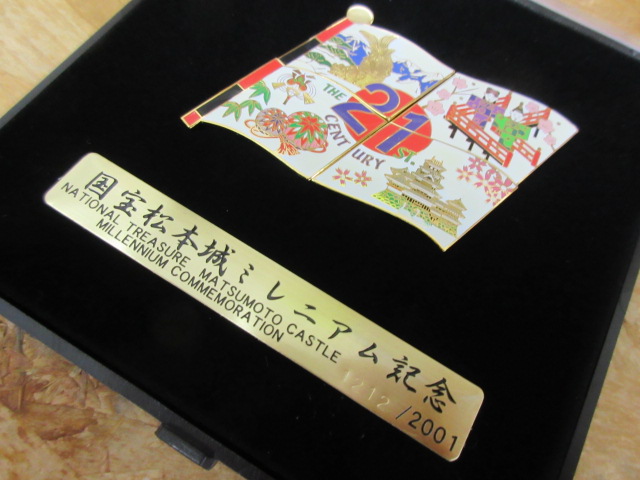 THE
21ST.
CENTURY
国宝松本城ミレニアム記念
NATIONAL TREASURE MATSUMOTO CASTLE
MILLENNIUM COMMEMORATION
1212/2001